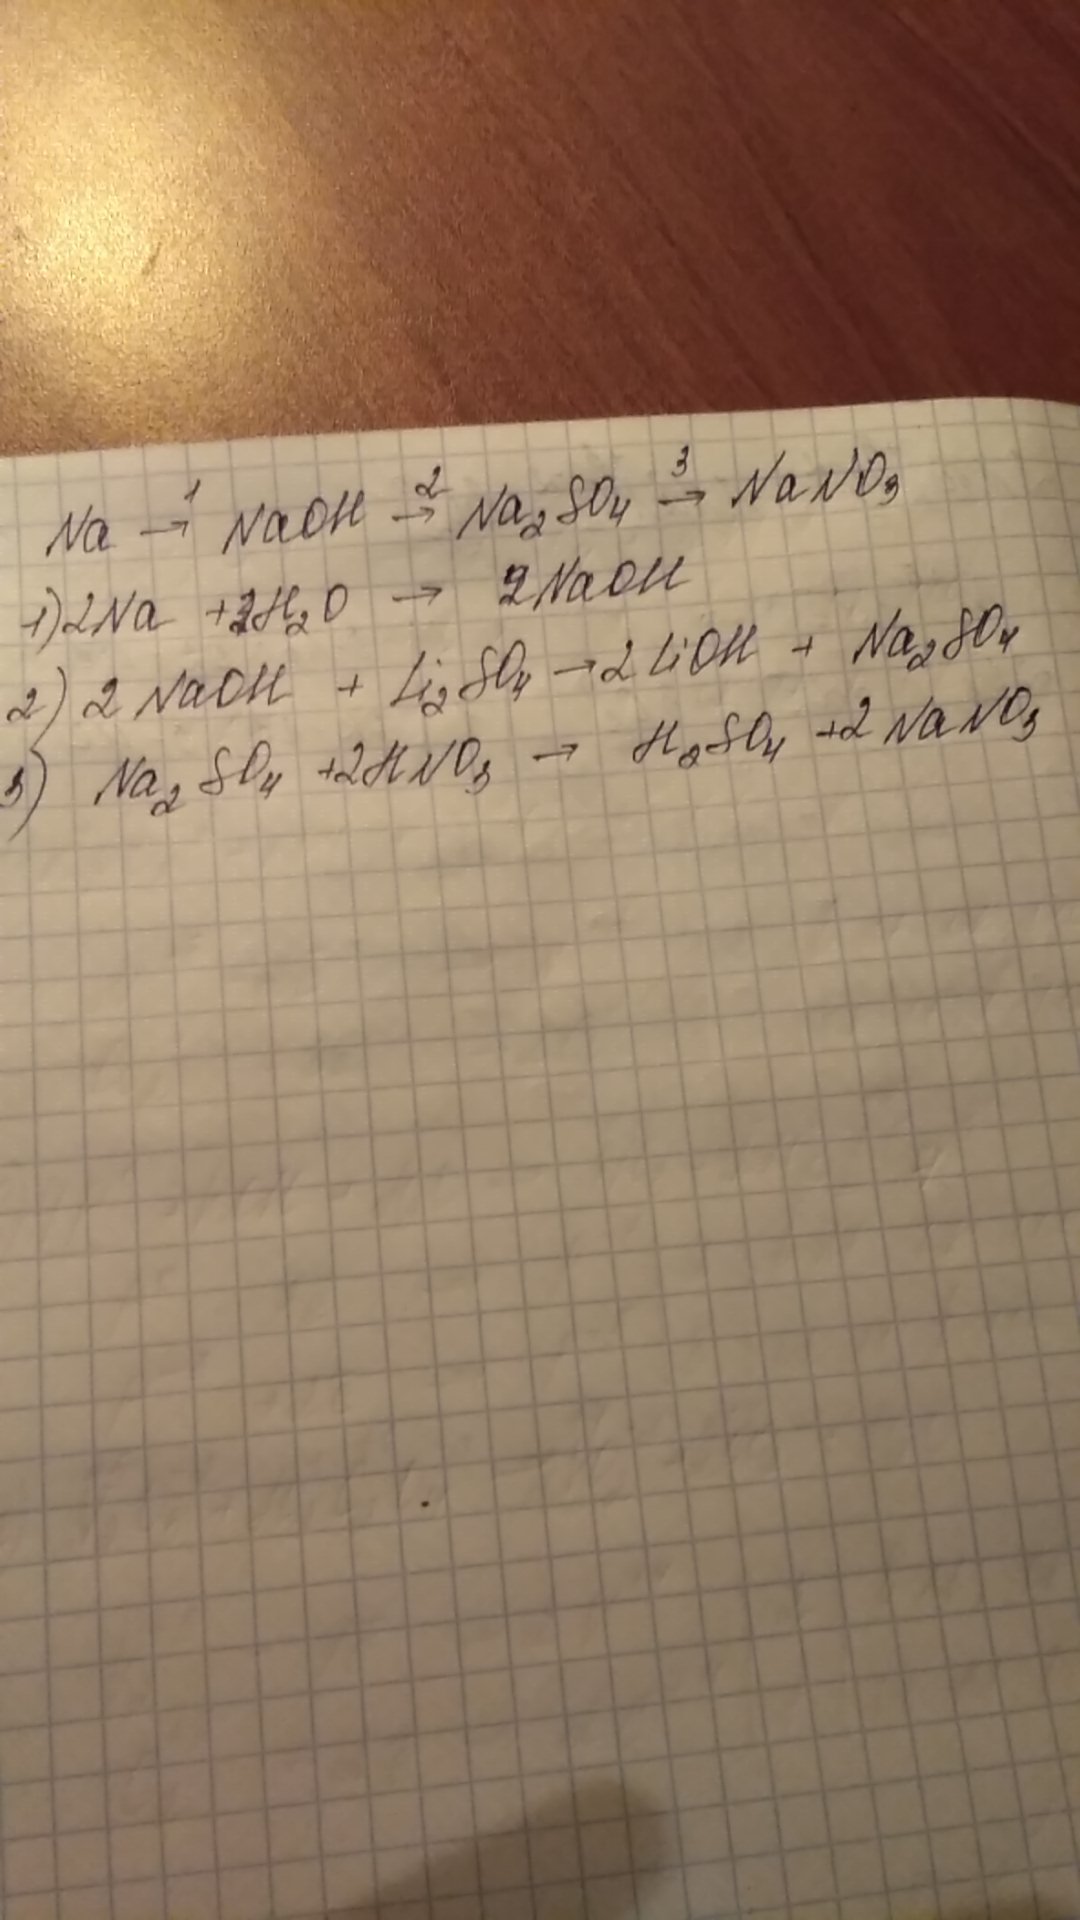 Na →¹ NaOH →² Na₂SO₄ →³ NaNO₃
1) 2Na + 2H₂O → 2NaOH
2) 2 NaOH + Li₂SO₄ → 2 LiOH + Na₂SO₄
3) Na₂SO₄ + 2HNO₃ → H₂SO₄ + 2 NaNO₃